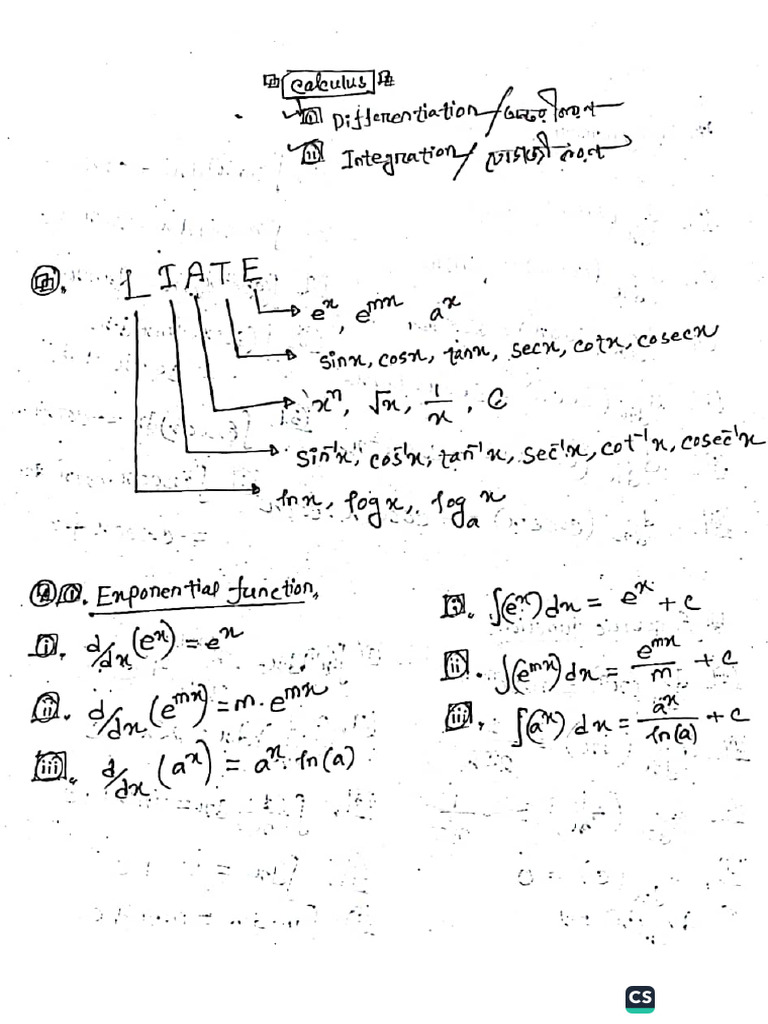 Calculus
(i) Differentiation/অন্তরীকরণ
(ii) Integration/যোগজীকরণ
LIATE
e^x, e^mx, a^x
sinx, cosx, tanx, secx, cotx, cosecx
x^n, √x, 1/x, C
sin⁻¹x, cos⁻¹x, tan⁻¹x, sec⁻¹x, cot⁻¹x, cosec⁻¹x
lnx, logx, log_a x
Exponential function,
(i). d/dx (e^x) = e^x
(ii). d/dx (e^mx) = m. e^mx
(iii). d/dx (a^x) = a^x. ln(a)
(i). ∫(e^x) dx = e^x + c
(ii). ∫(e^mx) dx = e^mx/m + c
(iii). ∫(a^x) dx = a^x/ln(a) + c
CS